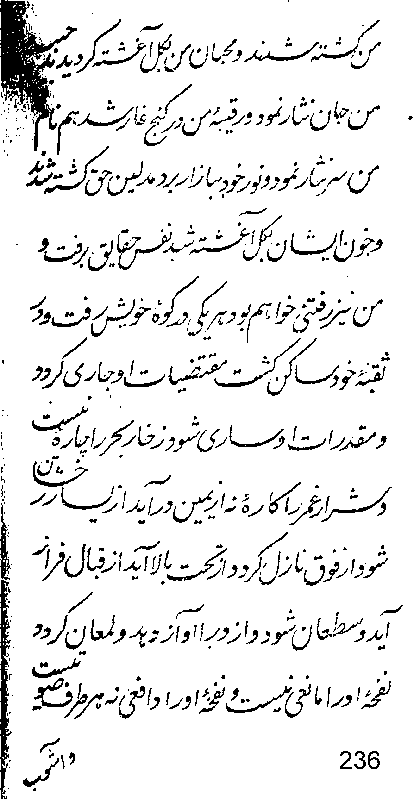 من کشته شدند و محبان من بگل آغشته گردیدند حبیب
من جان نثار نمود و رقیبهٔ من در کنج غار شد هم نام
من سر نثار نمود و نور خود ببازار برد مدلین حق کشته شدند
و خون ایشان بگل آغشته شد نفس حقایق برفت و
من نیز رفتنی خواهم بود هر یکی در کوهٔ خویش رفت و در
ثقبهٔ خود ساکن گشت مقتضیات او جاری گردد
و مقدرات او ساری شود زخار بحر را چاره نیست
و شرار غمر را کارهٔ نه از یمین در آید از یسار
شود از فوق نازل گردد از تحت بالا آید از قبال فراز
آید و سطعان شود و از درا آواز دهد و لمعان گردد
نفحهٔ او را مانعی نیست و نفخهٔ او را دافعی نه هر طرف نیست
236